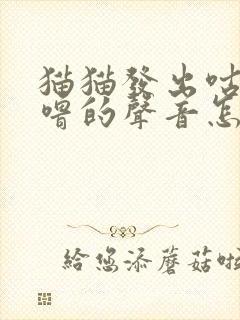 猫猫發出咕
嚕的聲音怎
給您添蘑菇啦